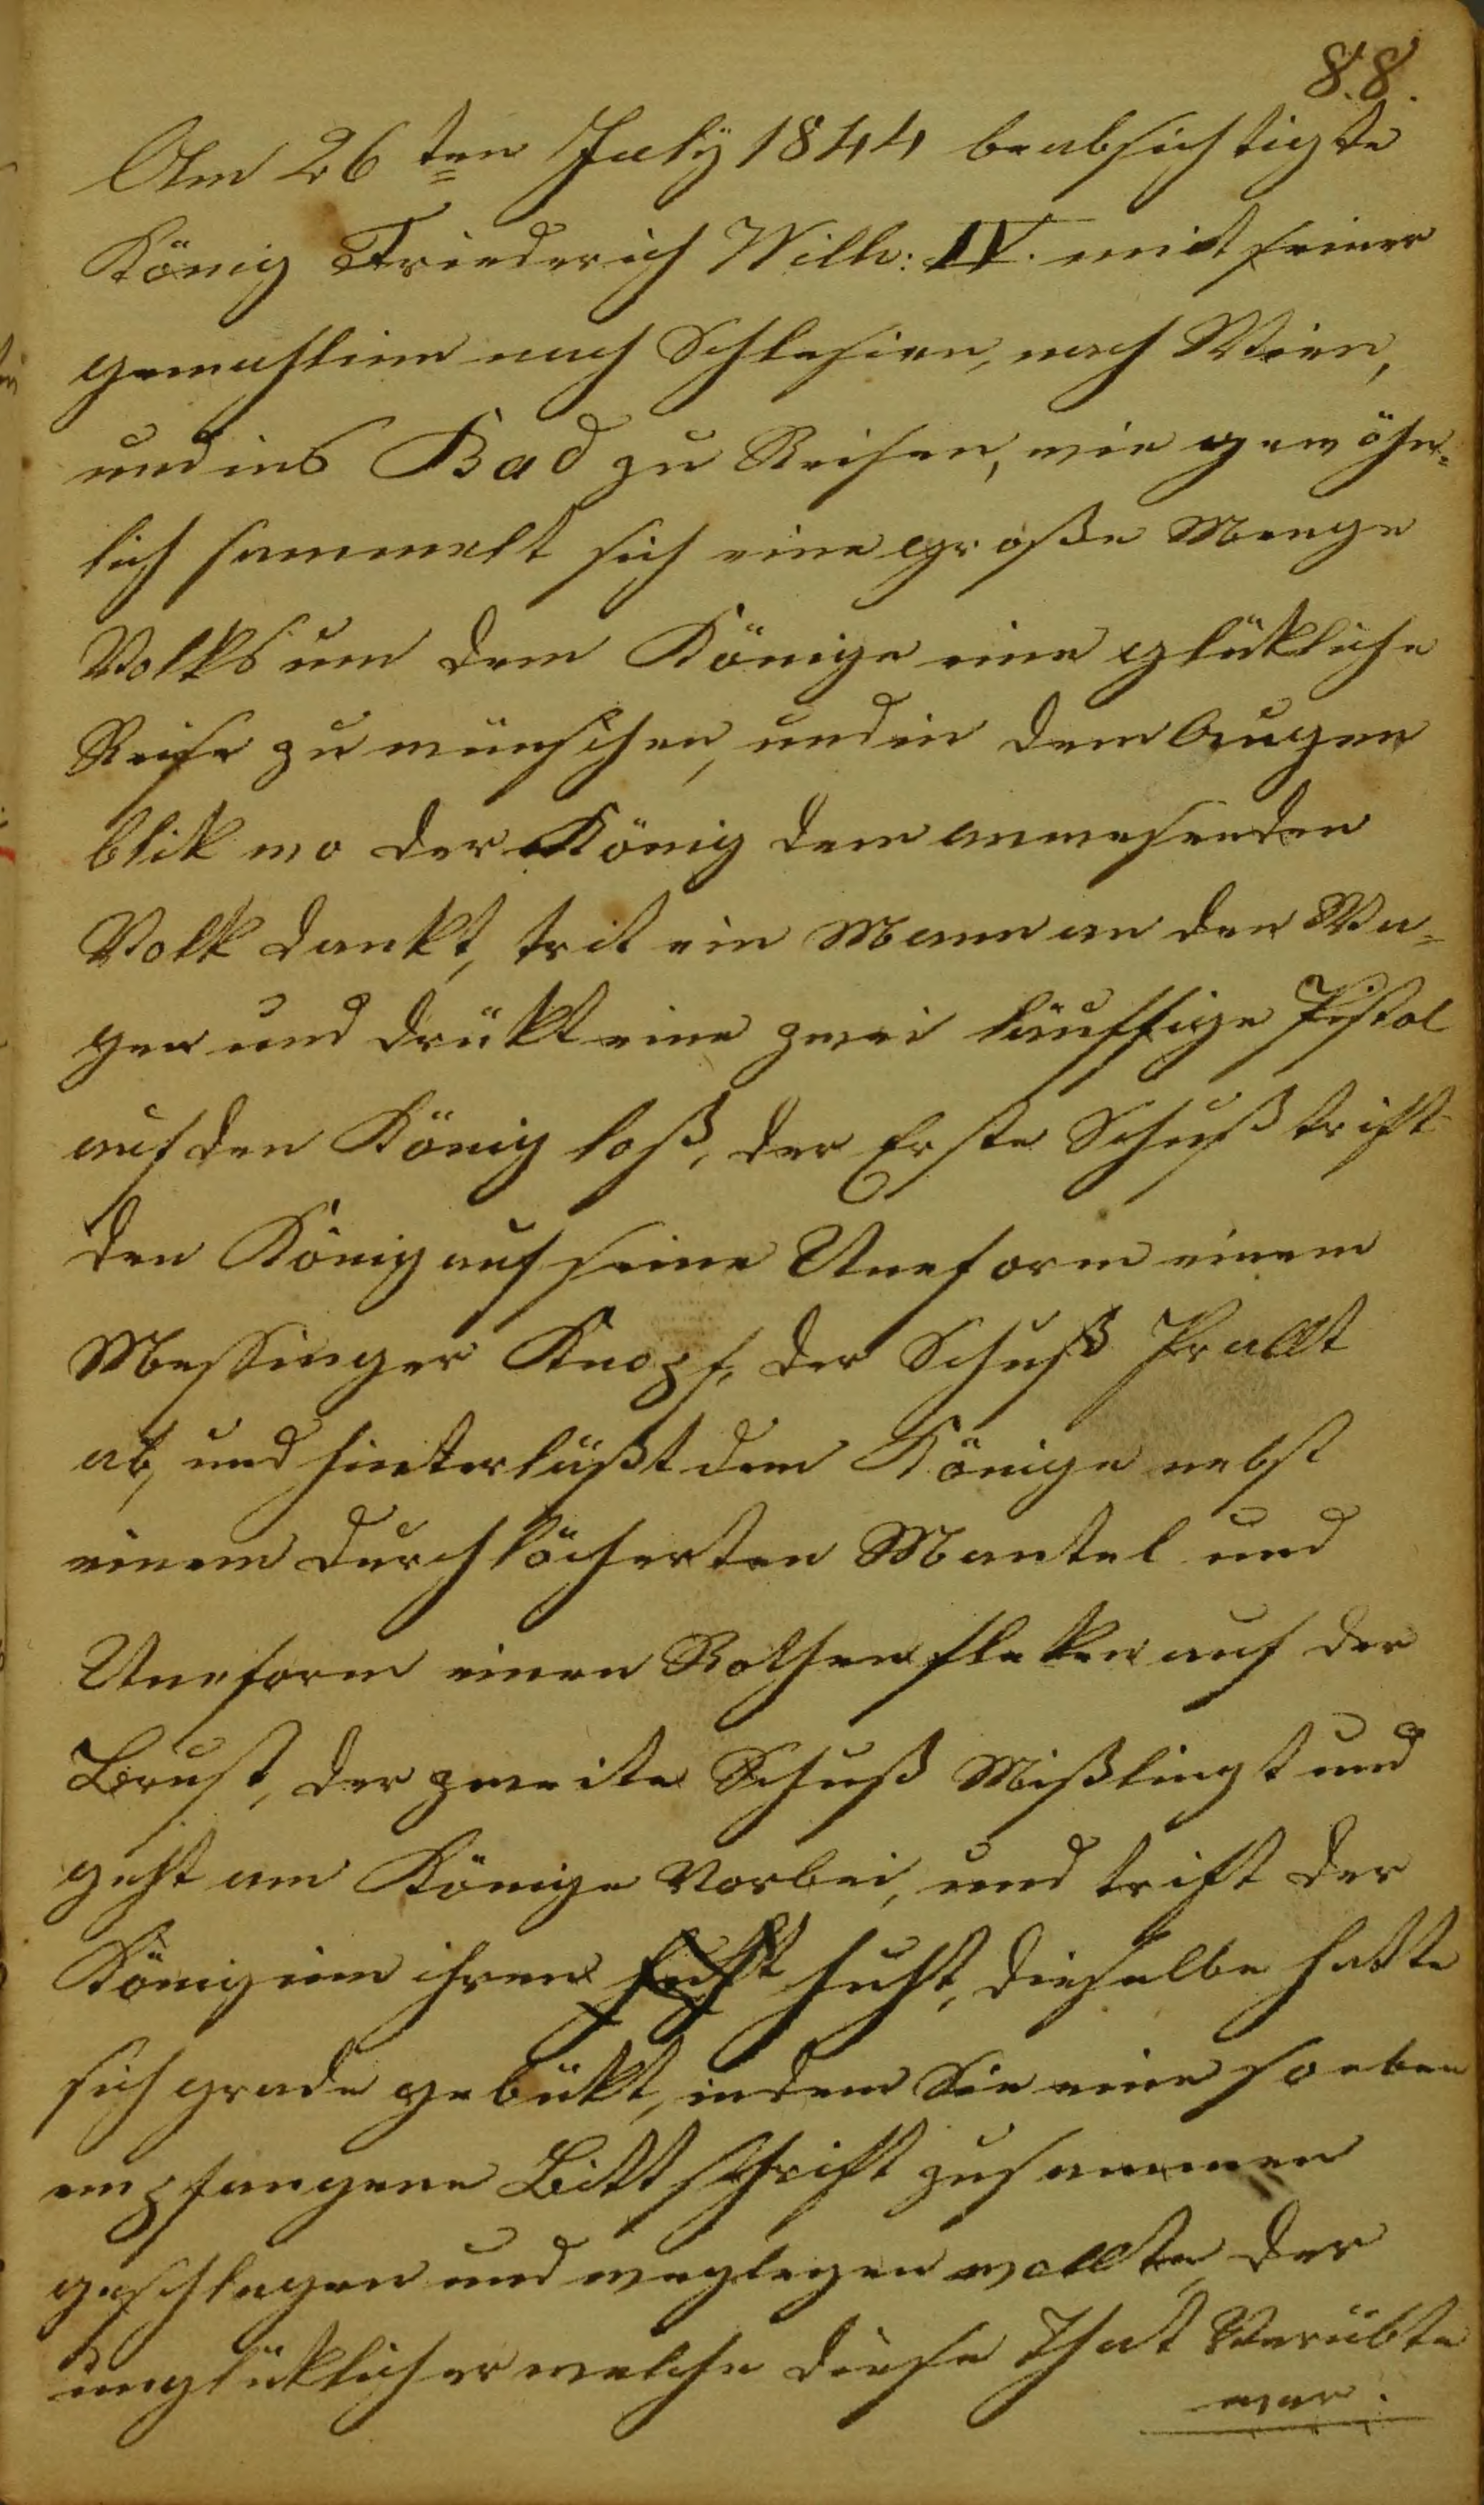 88.
Am 26ten July 1844 beabsichtigte
König Friederich Wilh: IV. mit seiner
gemahlinn nach Schlesien, nach Wien,
und ins Bad zu Reisen, wie gewöhn=
lich sammelt sich eine große Menge
Volks um dem Könige eine glükliche
Reise zu wünschen, und in dem Augen
blik wo der König dem anwesenden
Volk dankt, trit ein Mann an den Wa=
gen und drükt eine zwei läuffige Pistol
auf den König loß, der Erste Schuß trift
den König auf seine Uneform einem
Messinger Knopf, der Schuß Prallt
ab, und hinterläßt dem Könige nebst
einem durchlöcherten Mantel und
Uneform einen Rothen fleken auf der
Brust, der zweite Schuß Mißlingt und
geht am Könige Vorbei, und trift der
Königinn ihren huht, dieselbe hatte
sich grade gebükt, indem Sie eine soeben
empfangene Bittschrift zusammen
geschlagen und weglegen wollte, der
unglüklicher welche diese That Verübte
war.